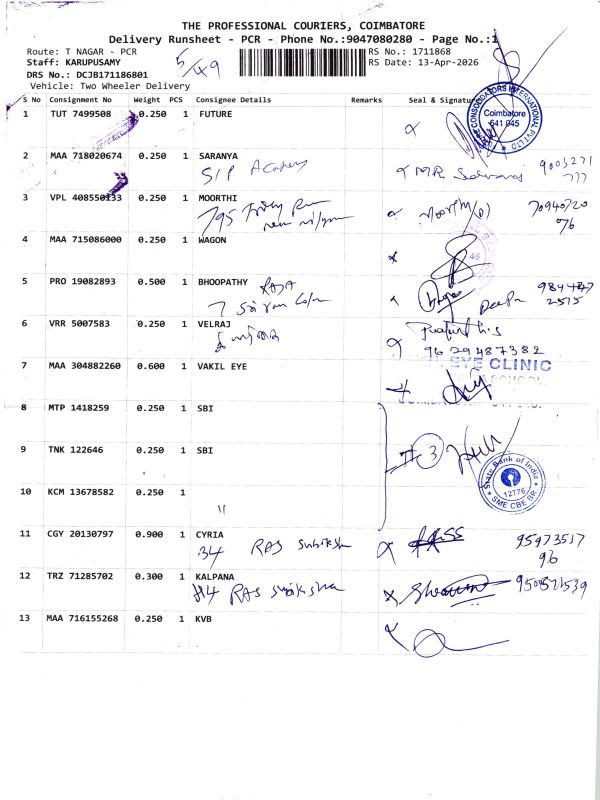 THE PROFESSIONAL COURIERS, COIMBATORE
Delivery Runsheet - PCR - Phone No.:9047080280 - Page No.:1
Route: T NAGAR - PCR
RS No.: 1711868
Staff: KARUPUSAMY
5/49
RS Date: 13-Apr-2026
DRS No.: DCJB171186801
Vehicle: Two Wheeler Delivery
S No Consignment No Weight PCS Consignee Details Remarks Seal & Signature
1 TUT 7499508 0.250 1 FUTURE
Coimbatore
641 045
2 MAA 718020674 0.250 1 SARANYA
S/P Academy
9003271
777
3 VPL 408550133 0.250 1 MOORTHI
795
70940720
76
4 MAA 715086000 0.250 1 WAGON
46
5 PRO 19082893 0.500 1 BHOOPATHY
RAJA
7
Deepa
2515
6 VRR 5007583 0.250 1 VELRAJ
9629487382
7 MAA 304882260 0.600 1 VAKIL EYE
EYE CLINIC
SCHOOL
8 MTP 1418259 0.250 1 SBI
9 TNK 122646 0.250 1 SBI
3
State Bank of India
12776
SME CBE BR
10 KCM 13678582 0.250 1
"
11 CGY 20130797 0.900 1 CYRIA
34 RAS Subiksha
95973517
96
12 TRZ 71285702 0.300 1 KALPANA
RAS Subiksha
13 MAA 716155268 0.250 1 KVB